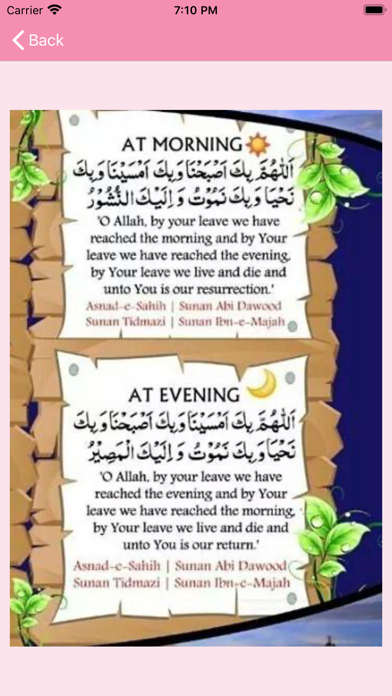 Carrier 7:10 PM
Back
AT MORNING
اَللّٰهُمَّ بِكَ اَصْبَحْنَا وَبِكَ اَمْسَيْنَا وَبِكَ
نَحْيَا وَبِكَ نَمُوْتُ وَ اِلَيْكَ النُّشُوْرُ
'O Allah, by your leave we have
reached the morning and by Your
leave we have reached the evening,
by Your leave we live and die and
unto You is our resurrection.'
Asnad-e-Sahih | Sunan Abi Dawood
Sunan Tidmazi | Sunan Ibn-e-Majah
AT EVENING
اَللّٰهُمَّ بِكَ اَمْسَيْنَا وَبِكَ اَصْبَحْنَا وَبِكَ
نَحْيَا وَبِكَ نَمُوْتُ وَ اِلَيْكَ الْمَصِيْرُ
'O Allah, by your leave we have
reached the evening and by Your
leave we have reached the morning,
by Your leave we live and die and
unto You is our return.'
Asnad-e-Sahih | Sunan Abi Dawood
Sunan Tidmazi | Sunan Ibn-e-Majah